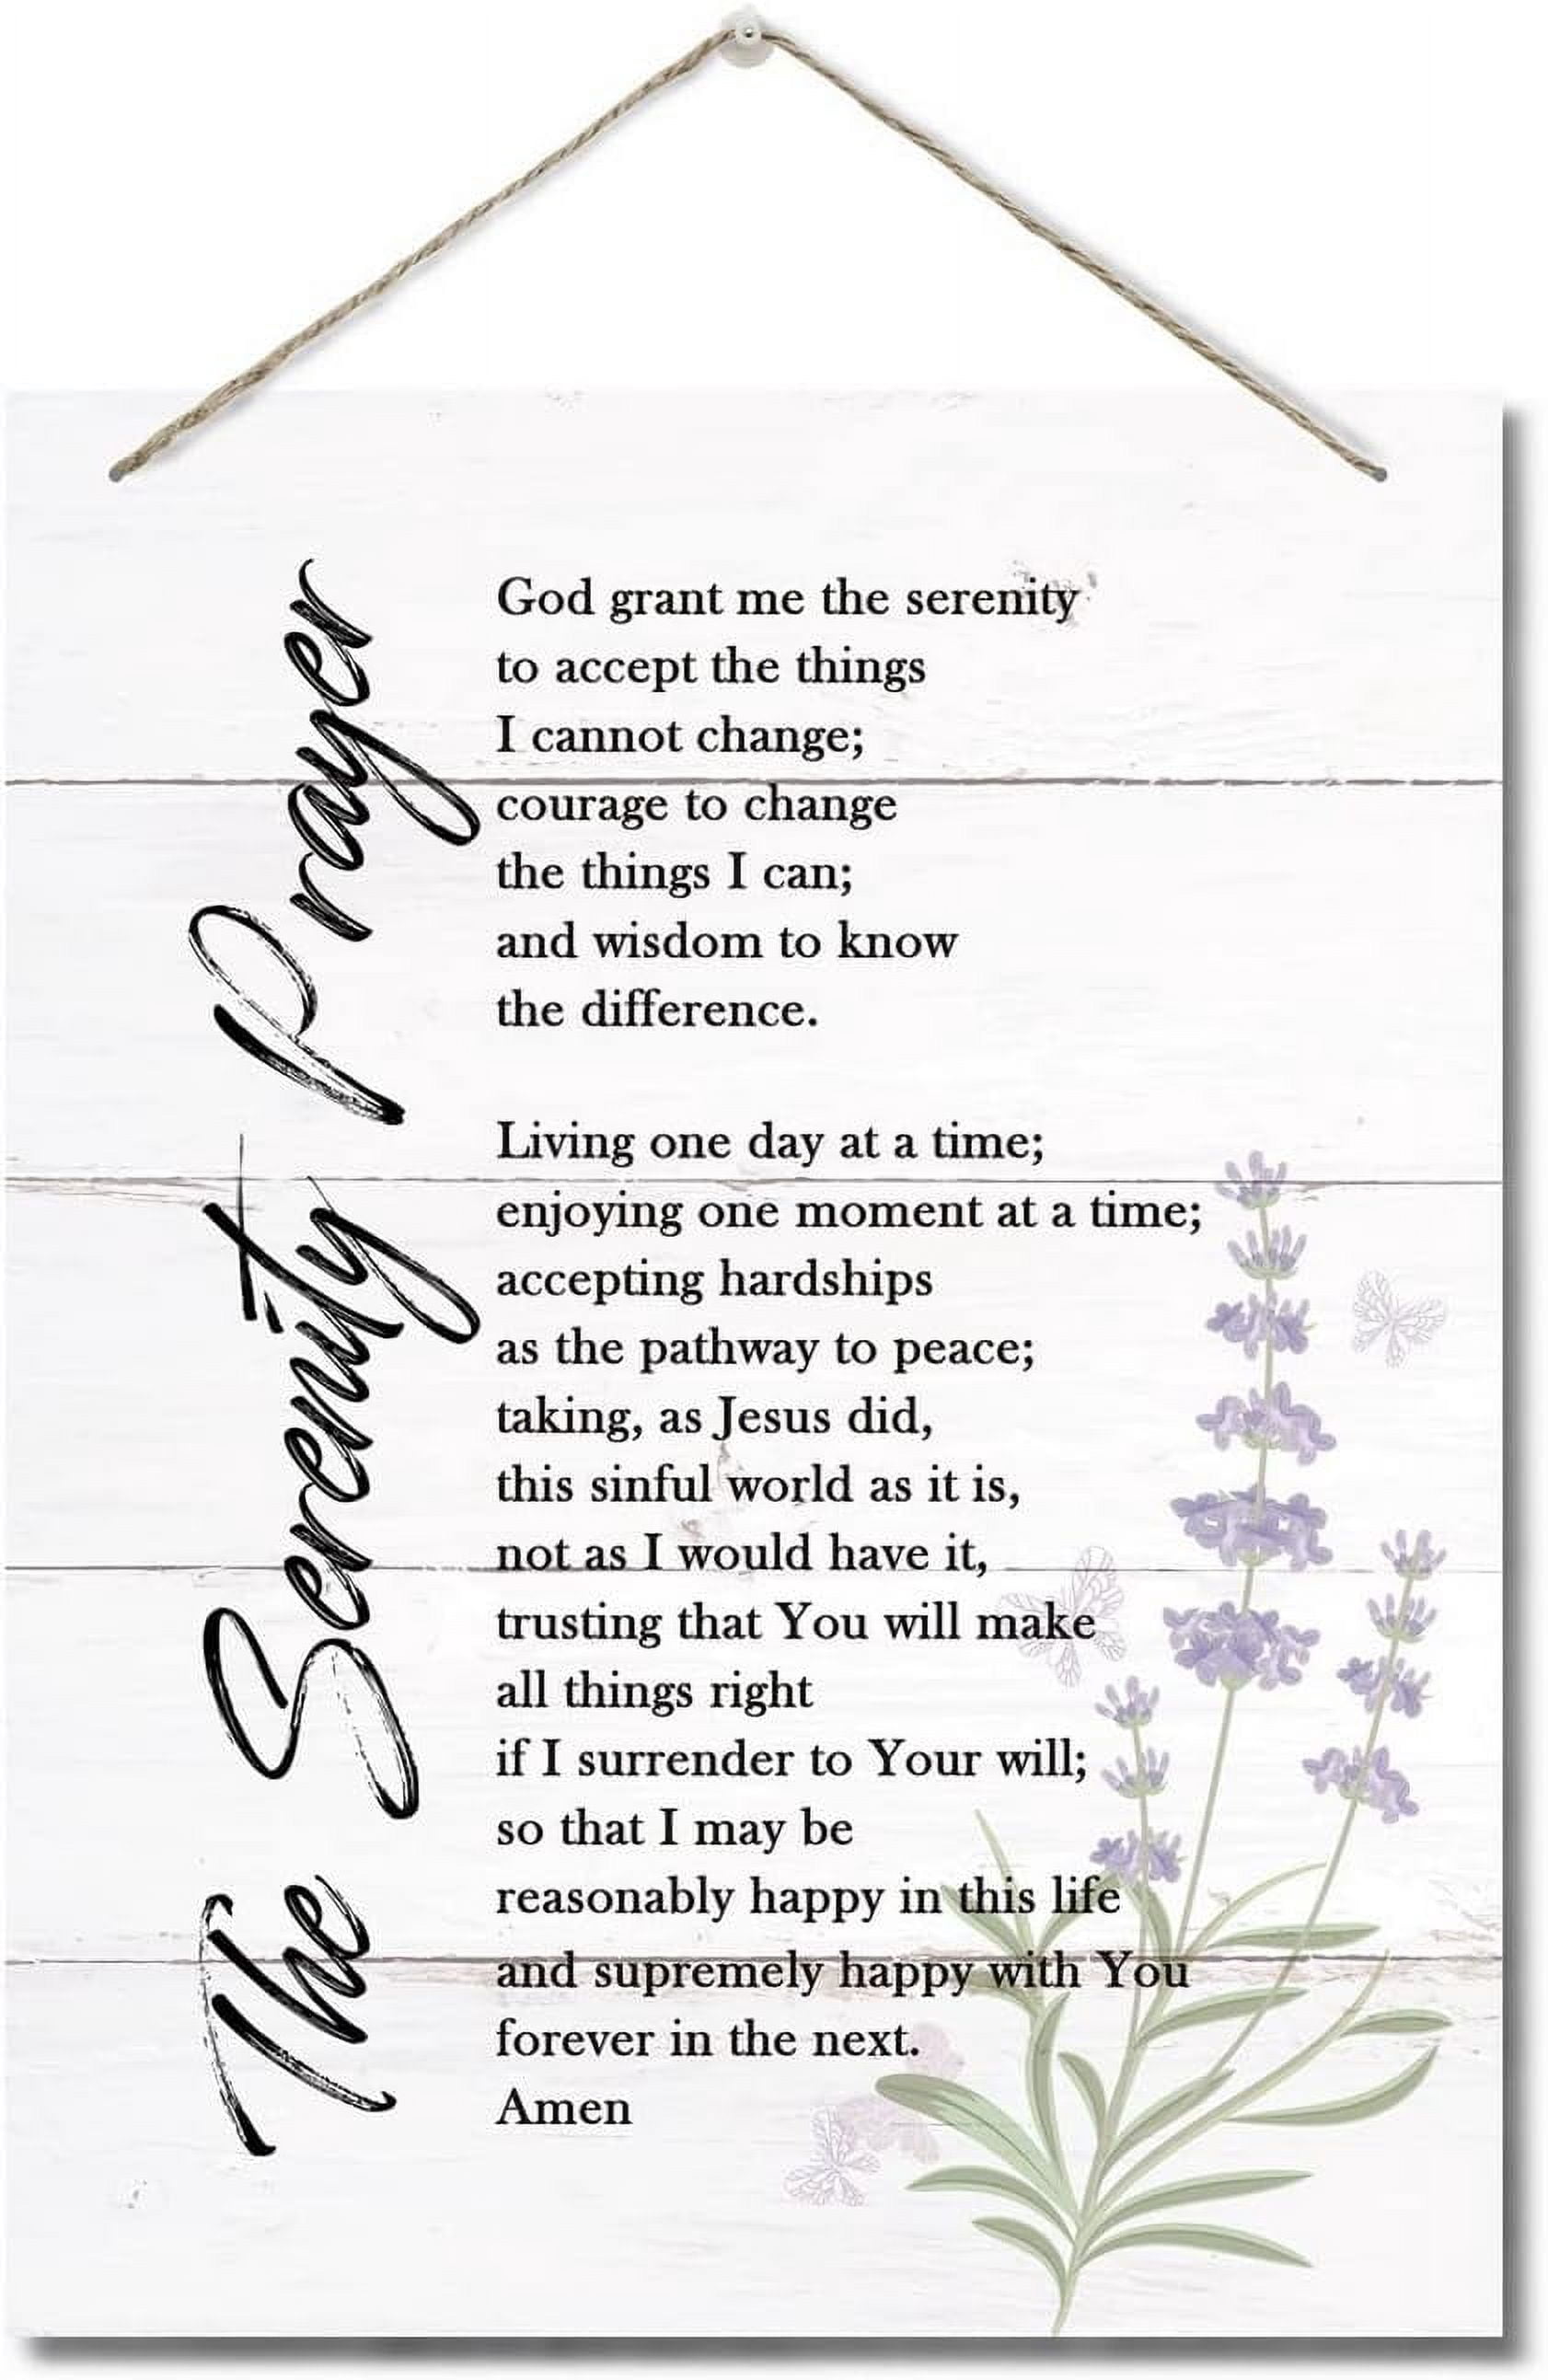 The Serenity Prayer
God grant me the serenity
to accept the things
I cannot change;
courage to change
the things I can;
and wisdom to know
the difference.
Living one day at a time;
enjoying one moment at a time;
accepting hardships
as the pathway to peace;
taking, as Jesus did,
this sinful world as it is,
not as I would have it,
trusting that You will make
all things right
if I surrender to Your will;
so that I may be
reasonably happy in this life
and supremely happy with You
forever in the next.
Amen